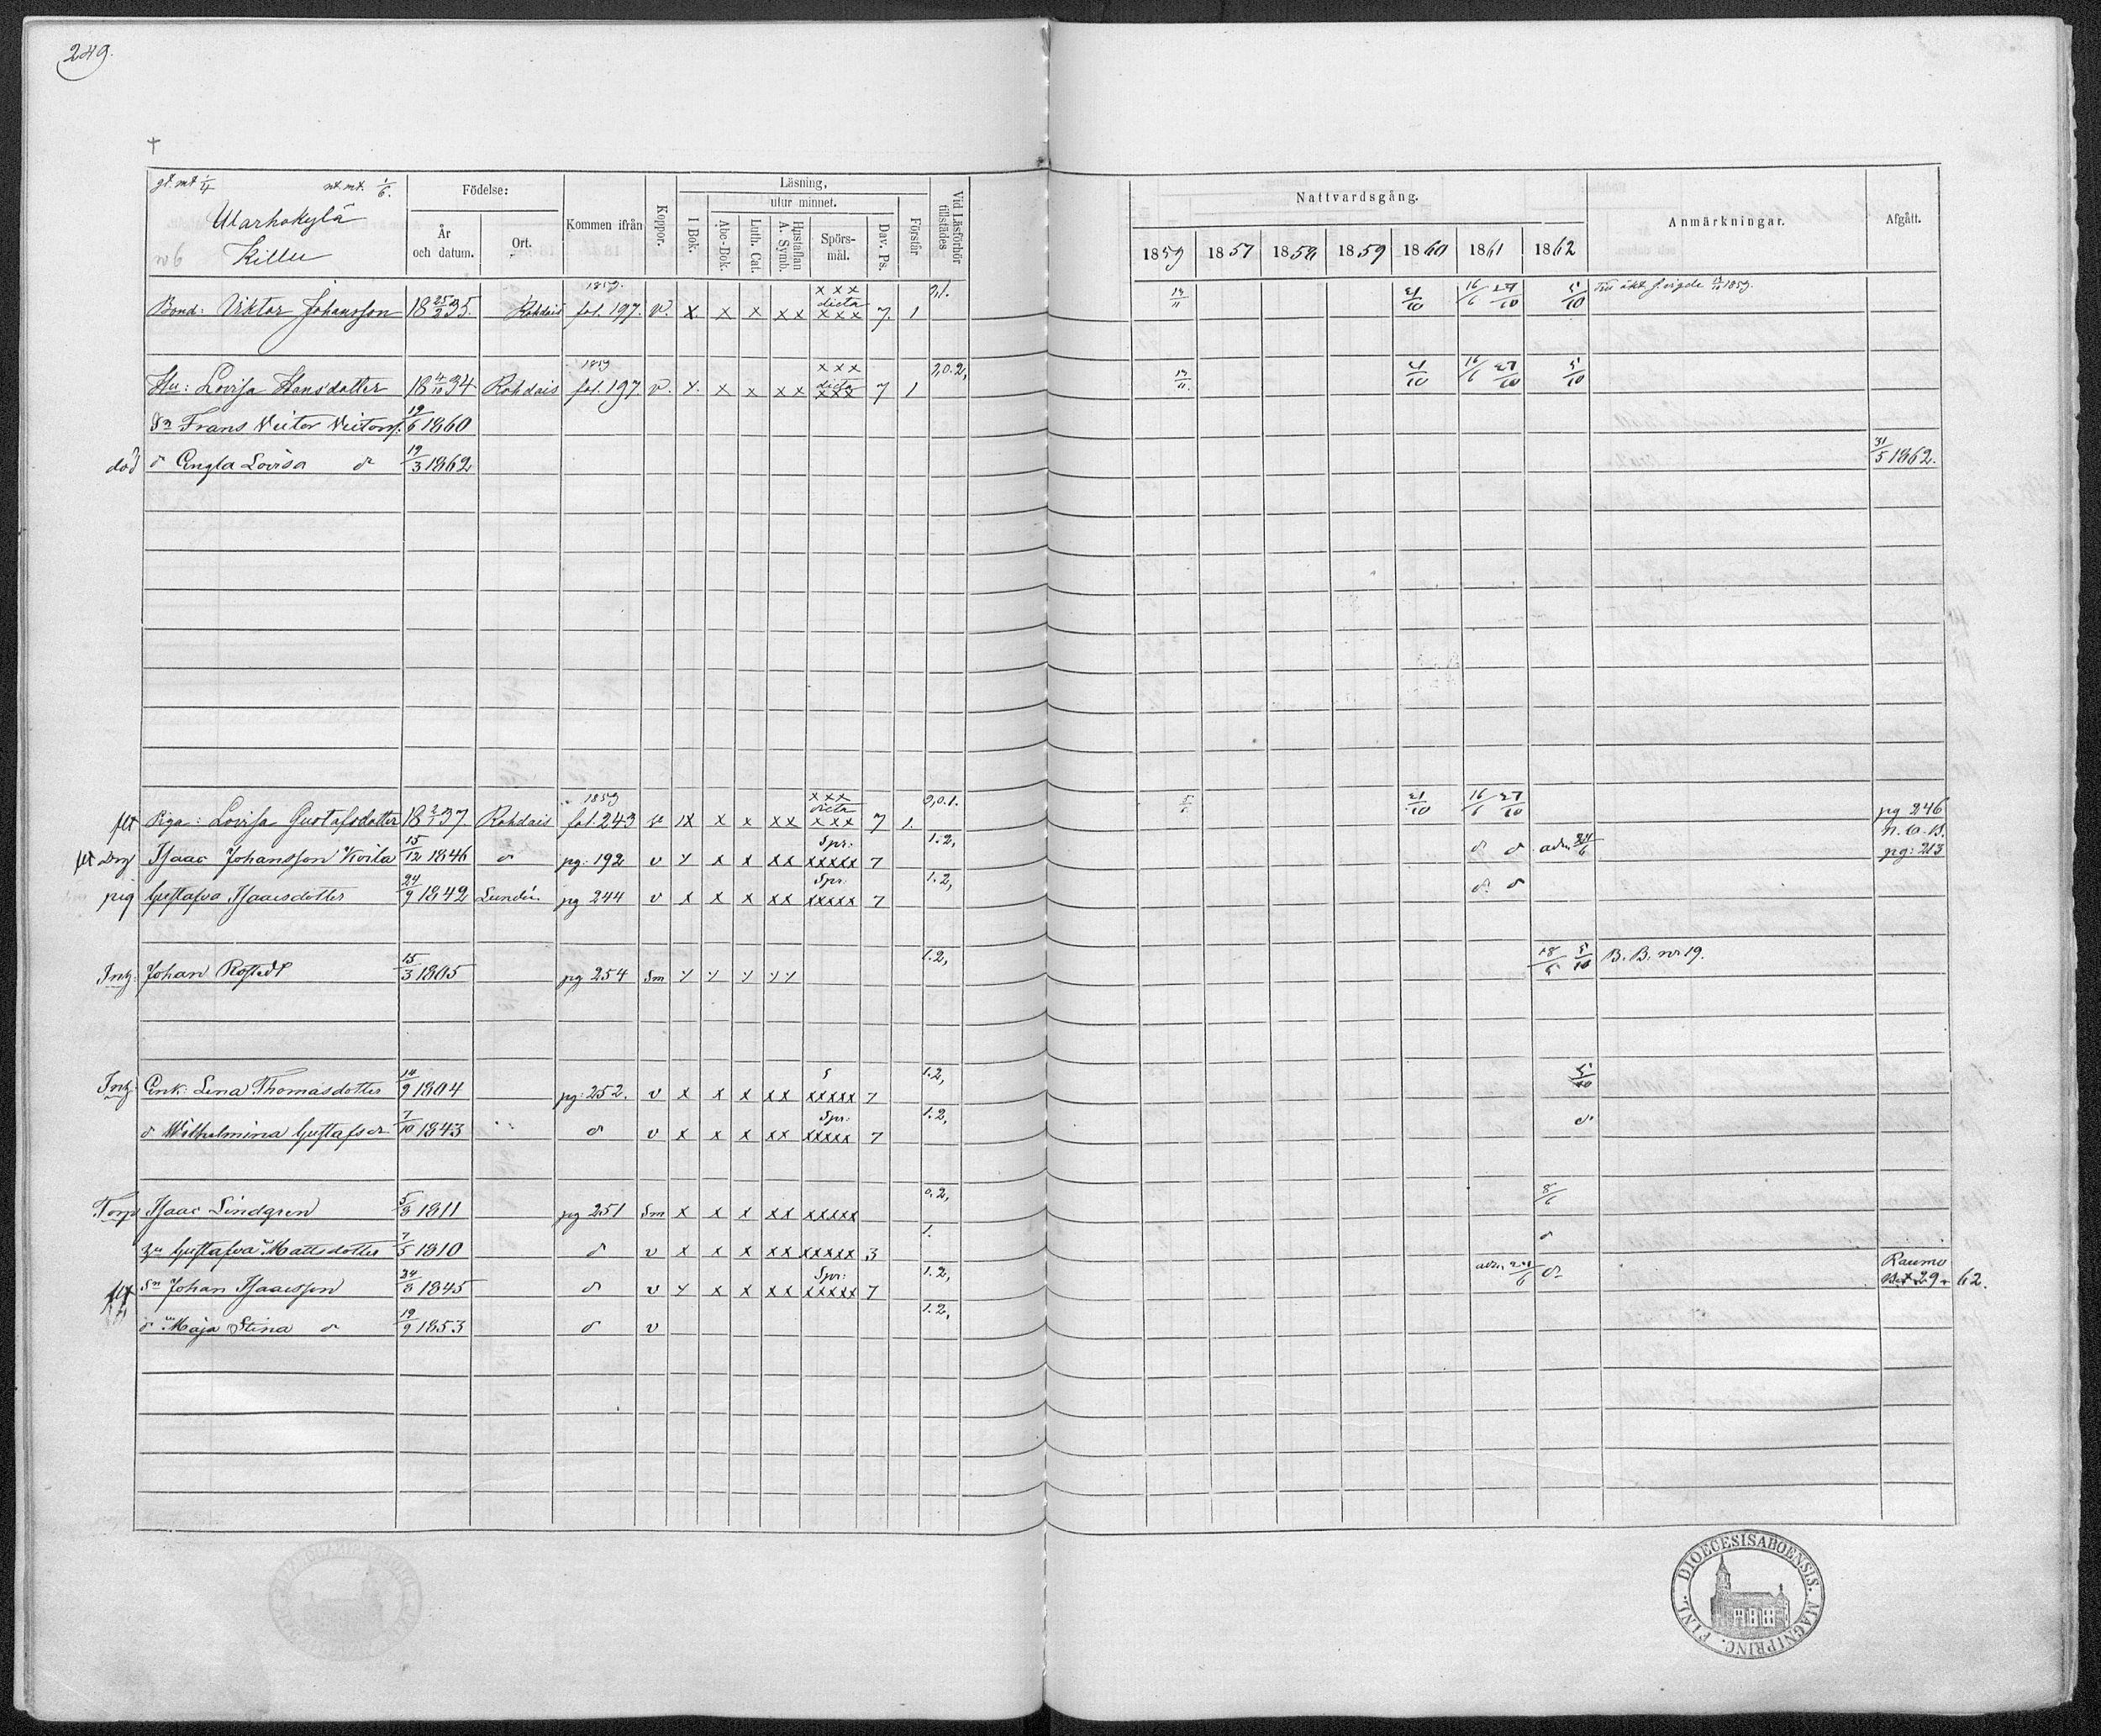 249.
gt. mt 1/4 nt mt. 1/6.
Födelse:
Läsning,
utur minnet.
Kommen ifrån
Koppor.
I Bok.
Abc-Bok.
Luth. Cat.
Hustaflan
A. Symb.
Spörs-
mål.
Dav. Ps.
Förstår
Vid Läsförhör
tillstädes
År
och datum.
Ort.
Nattvardsgång.
Anmärkningar.
Afgått.
Killu
1859 1857 1858 1859 1860 1861 1862
Bond: Viktor Johansson 18 25/2 35. Rohdais 1859. fol. 197. v. x x x x x x x x dicta x x x 7. 1 2,1. 21/10 16/6 27/10 5/10
Hu: Lovisa Hansdotter 18 4/10 34 Rohdais 1859 fol. 197. v. x x x x x x x x dicta x x x 7 1 2,0.2, 21/10 16/6 27/10 5/10
Sn Frans Victor Victorss. 19/6 1860
död d Engla Lovisa d 19/3 1862 31/5 1862.
flt Piga: Lovisa Gustafsdotter 18 2/1 37. Rohdais 1859 fol. 243 v x x x x x x x x dicta x x x 7 1. 2,0.1. 21/10 16/6 27/10 pg 246
flt Drg Isaac Johansson Kvila 15/12 1846 d pg: 192 v x x x x x Spr: xxxxx 7 1.2, d d adm 24/6 n. C. B. pg: 213
pig Gustafva Isaacsdotter 24/9 1842 Lundén pg 244 v x x x x x Spr: xxxxx 7 1.2, d d
Inh: Johan Rostedt 15/3 1805 pg 254 Sm x x x x x 1.2, 18/6 5/10 B. B. nr 19.
Inh: Enk: Lena Thomasdotter 14/9 1804 pg: 252. v x x x x x S xxxxx 7 1.2, 5/10
d Wilhelmina Gustafsdr 7/10 1843 d v x x x x x Spr: xxxxx 7 1.2, d
Torp Isaac Lindgren 5/8 1811 pg 251 Sm x x x x x xxxxx 0.2, 8/6
hu Gustafva Mattsdotter 7/5 1810 d v x x x x x xxxxx 3 1. d
flt Sn Johan Isaacsson 24/8 1845 d v x x x x x Spr: xxxxx 7 1.2, d Raumo Bet 29 62.
d Maja Stina d 19/9 1853 d v 1.2,
FINL. DIOECESIS ABOENSIS. MAGNI PRINC.